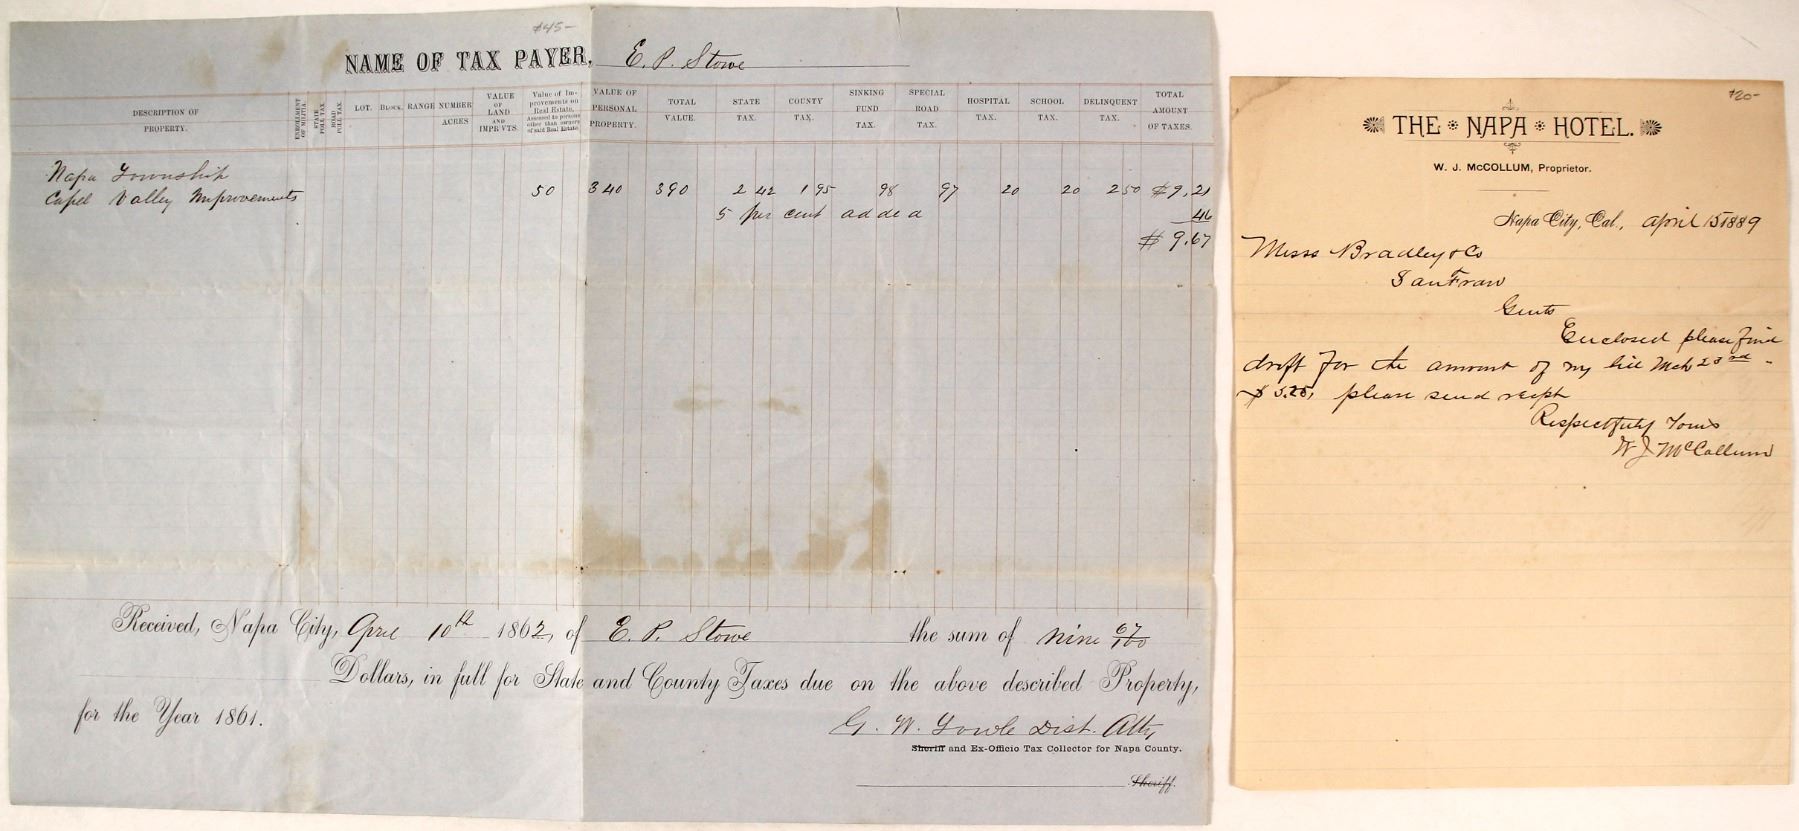 $45-
NAME OF TAX PAYER, E. P. Stowe
DESCRIPTION OF PROPERTY.
ENROLLMENT OF MILITIA.
STATE POLL TAX
ROAD POLL TAX
LOT.
BLOCK.
RANGE
NUMBER ACRES
VALUE OF LAND AND IMPR'VTS.
Value of Improvements on Real Estate, Assessed to persons other than owners of said Real Estate
VALUE OF PERSONAL PROPERTY.
TOTAL VALUE.
STATE TAX.
COUNTY TAX.
SINKING FUND TAX.
SPECIAL ROAD TAX.
HOSPITAL TAX.
SCHOOL TAX.
DELINQUENT TAX.
TOTAL AMOUNT OF TAXES.
Napa Township
Capel Valley Improvements 50 340 390 2 42 1 95 98 97 20 20 2 50 $9,21
5 per cent added 46
$ 9.67
Received, Napa City, April 10th 1862, of E. P. Stowe the sum of nine 67/100
Dollars, in full for State and County Taxes due on the above described Property,
for the Year 1861.
G. W. Towle Dist. Atty
Sheriff and Ex-Officio Tax Collector for Napa County.
Sheriff.
$20-
THE NAPA HOTEL.
W. J. McCOLLUM, Proprietor.
Napa City, Cal., april 15 1889
Mess Bradley & Co
San Fran
Gents
Enclosed please find
draft for the amount of my bill Mch 23rd -
$5.25, please send recipt
Respectfuly Yours
W J McCollum